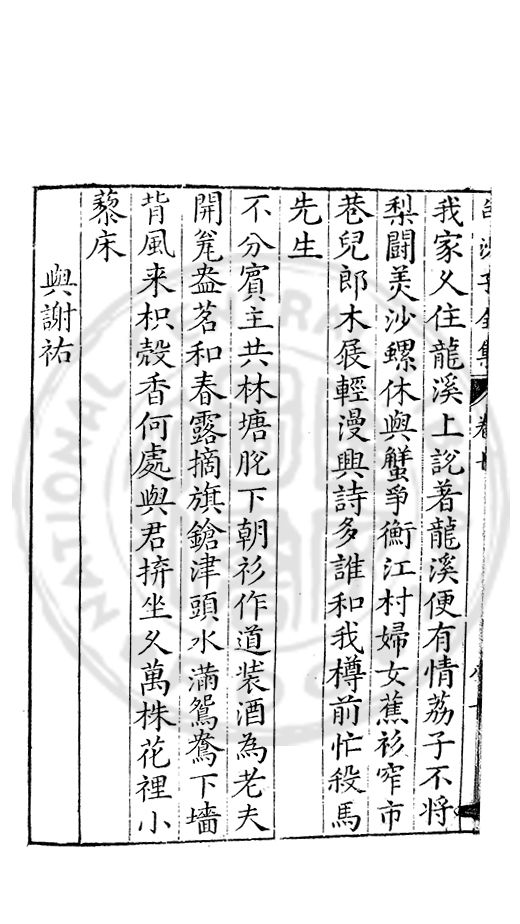 白沙子全集 卷
我家久住龍溪上說著龍溪便有情荔子不将
梨闘羙沙螺休與蟹爭衡江村婦女蕉衫窄市
巷兒郎木屐輕漫興詩多誰和我樽前忙殺馬
先生
不分賓主共林塘脫下朝衫作道装酒為老夫
開瓮盎茗和春露摘旗鎗津頭水滿鴛鴦下墻
背風来枳殼香何處與君拚坐久萬株花裡小
藜床
與謝祐
NATIONAL